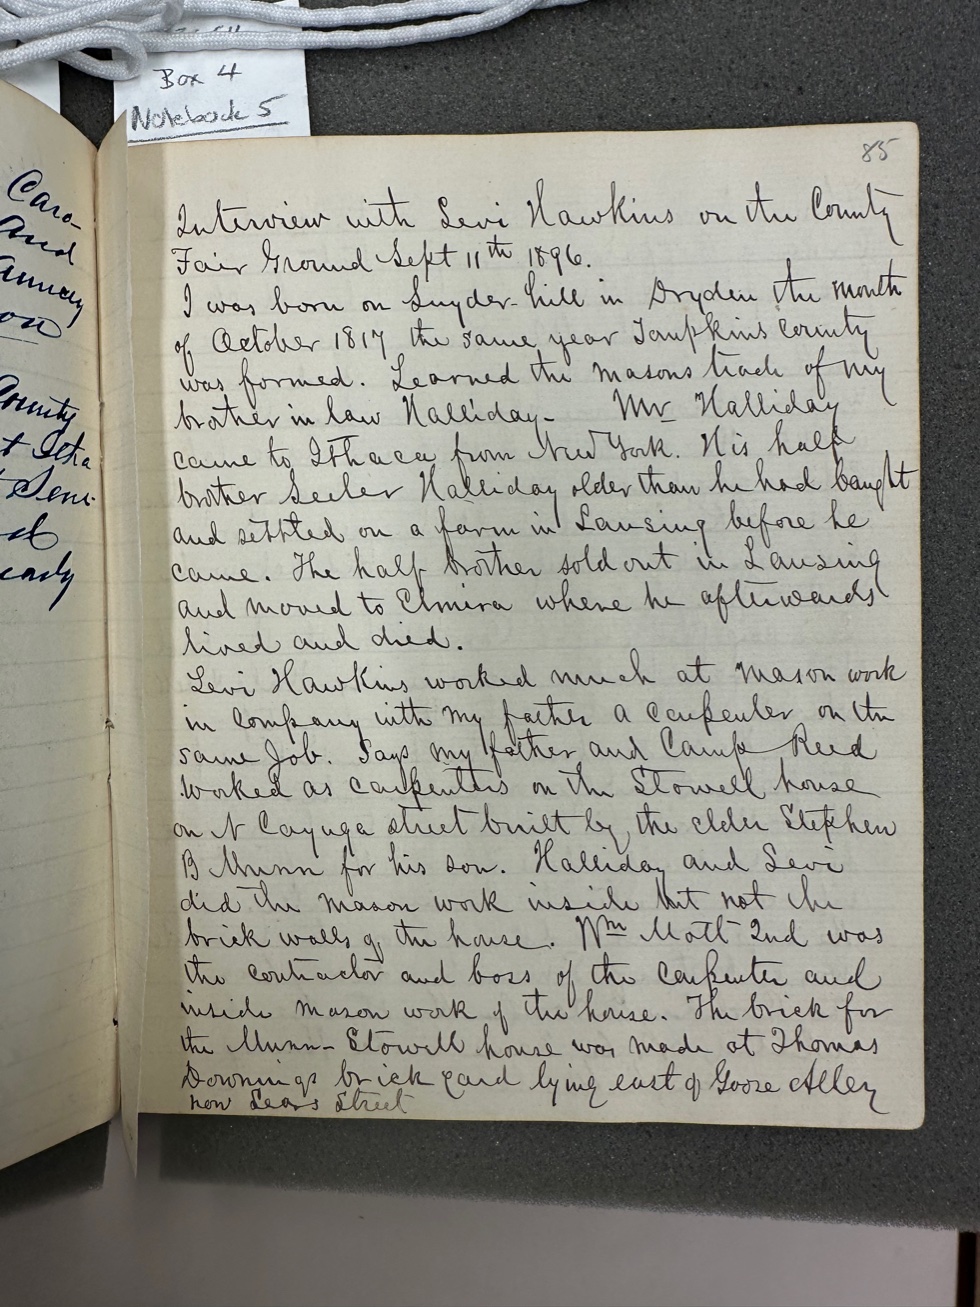 Box 4
Notebook 5
85
Caro-
and
County
Interview with Levi Hawkins on the County
Fair Ground Sept 11th 1896.
I was born on Snyder hill in Dryden the month
of October 1817 the same year Tompkins County
was formed. Learned the masons trade of my
brother in law Halliday- Mr Halliday
came to Ithaca from New York. His half
brother Seeler Halliday older than he had baught
and settled on a farm in Lansing before he
came. The half brother sold out in Lansing
and moved to Elmira where he afterwards
lived and died.
Levi Hawkins worked much at mason work
in company with my father a carpenter on the
same Job. Says my father and Camp Reed
worked as carpenters on the Stowell house
on N Cayuga street built by the elder Stephen
B Munn for his son. Halliday and Levi
did the mason work inside but not the
brick walls of the house. Wm Mott 2nd was
the contractor and boss of the carpenter and
inside mason work of the house. The brick for
the Munn-Stowell house was made at Thomas
Downings brick yard lying east of Goose Alley
now Sears Street